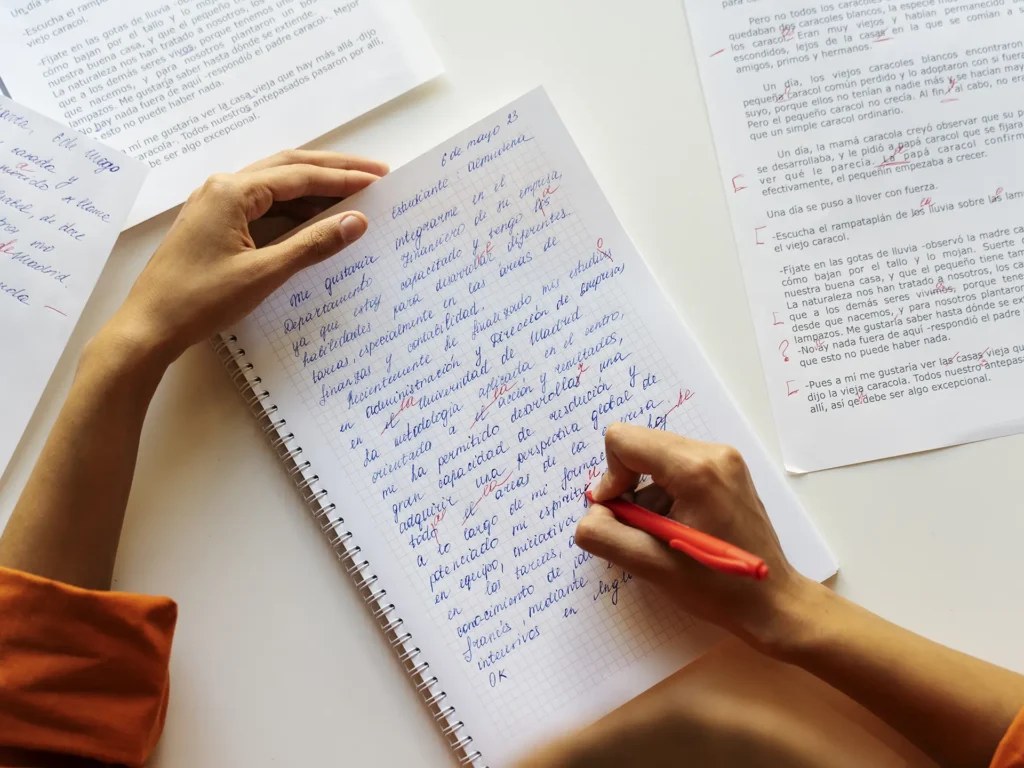 -Escucha el rampataplán de las gotas de lluvia
viejo caracol.
-Fíjate en las gotas de lluvia
cómo bajan por el tallo y lo mojan.
nuestra buena casa, y que el pequeño
La naturaleza nos han tratado a nosotros, los
que a los demás seres vivos, porque tenemos una
nacemos, y para nosotros plantaron un
lampazos. Me gustaría saber hasta dónde se extiende
-No hay nada fuera de aquí -respondió el padre caracol-. Mejor
esto no puede haber nada.
a mí me gustaría ver la casa vieja que hay más allá -dijo
caracola-. Todos nuestros antepasados pasaron por allí,
be ser algo excepcional.
6 de mayo
6 de mayo 23
Estudiante: Almudena
Me gustaría integrarme en el
Departamento Financiero de su empresa,
ya que estoy capacitado y tengo los
habilidades para desarrolar diferentes
tareas, especialmente en las áreas de
finanzas y contabilidad.
Recientemente he finalizado mis estudios
en administración y dirección de empresas
en el Universidad de Madrid
La metodología aplicada en el centro,
orientado a el acción y resultados,
me ha permitido desarrollar una
gran capacidad de resolución y
adquirir una perspectiva global de
todo el áreas de la empresa.
A lo largo de mi
potenciado mi espíritu
en equipo, iniciativa
en los tareas,
conocimiento de
francés, mediante
intensivos en
OK
Pero no todos los caracoles
quedaban dos caracoles blancos, la especie más
los caracol. Eran muy viejos y habían permanecido
escondidos, lejos de la casa en la que se comían a
amigos, primos y hermanos.
Un día, los viejos caracoles encontraron
pequeño caracol común perdido y lo adoptaron con si fuera
suyo, porque ellos no tenían a nadie más y se hacían may
Pero el pequeño caracol no crecía. Al fin y al cabo, no era
que un simple caracol ordinario.
Un día, la mamá caracola creyó observar que su p
se desarrollaba, y le pidió a papá caracol que se fijara
ver qué le parecía. Lo papá caracol confirm
efectivamente, el pequeñín empezaba a crecer.
Una día se puso a llover con fuerza.
-Escucha el rampataplán de los lluvia sobre las lam
el viejo caracol.
-Fíjate en las gotas de lluvia -observó la madre ca
cómo bajan por el tallo y lo mojan. Suerte
nuestra buena casa, y que el pequeño tiene tam
La naturaleza nos han tratado a nosotros, los cá
que a los demás seres vivimos, porque tene
desde que nacemos, y para nosotros plantaron
lampazos. Me gustaría saber hasta dónde se ex
-No ay nada fuera de aquí -respondió el padre
que esto no puede haber nada.
-Pues a mí me gustaría ver las casas vieja qu
dijo la vieja caracola. Todos nuestro antepas
allí, así qe debe ser algo excepcional.